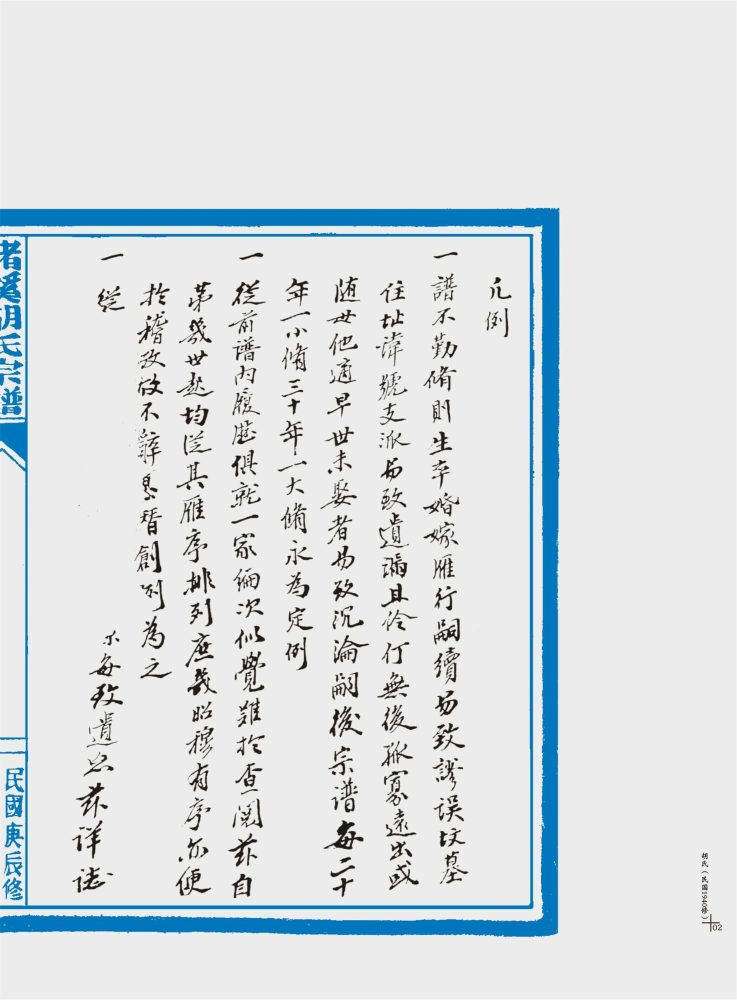 凡例
一譜不勤脩則生卒婚嫁雁行嗣續易致謬误坟墓
住址諱號支派易致遺漏且伶仃無後孤寡遠出或
随母他適早世未娶者易致沉淪嗣後宗谱每二十
年一小脩三十年一大脩永為定例
一從前譜内履歴俱就一家编次似覺難於查閲兹自
第幾世起均從其雁序排列庶幾昭穆有序亦便
於稽攷故不辭創列為之
一從
不毎致遺忘兹详誌
渚溪胡氏宗譜
民國庚辰修
胡氏（民国1940修）
02